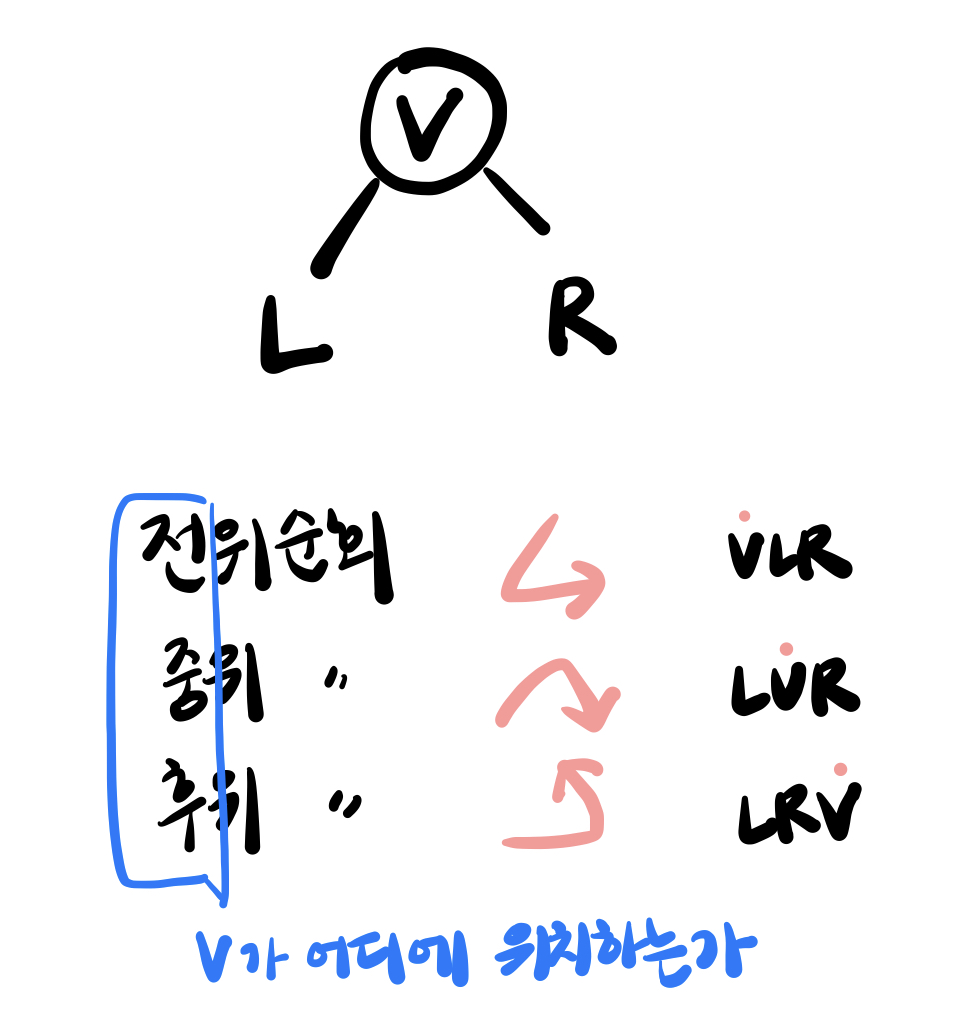 V
L R
전위순회 VLR
중위 〃 LVR
후위 〃 LRV
V가 어디에 위치하는가